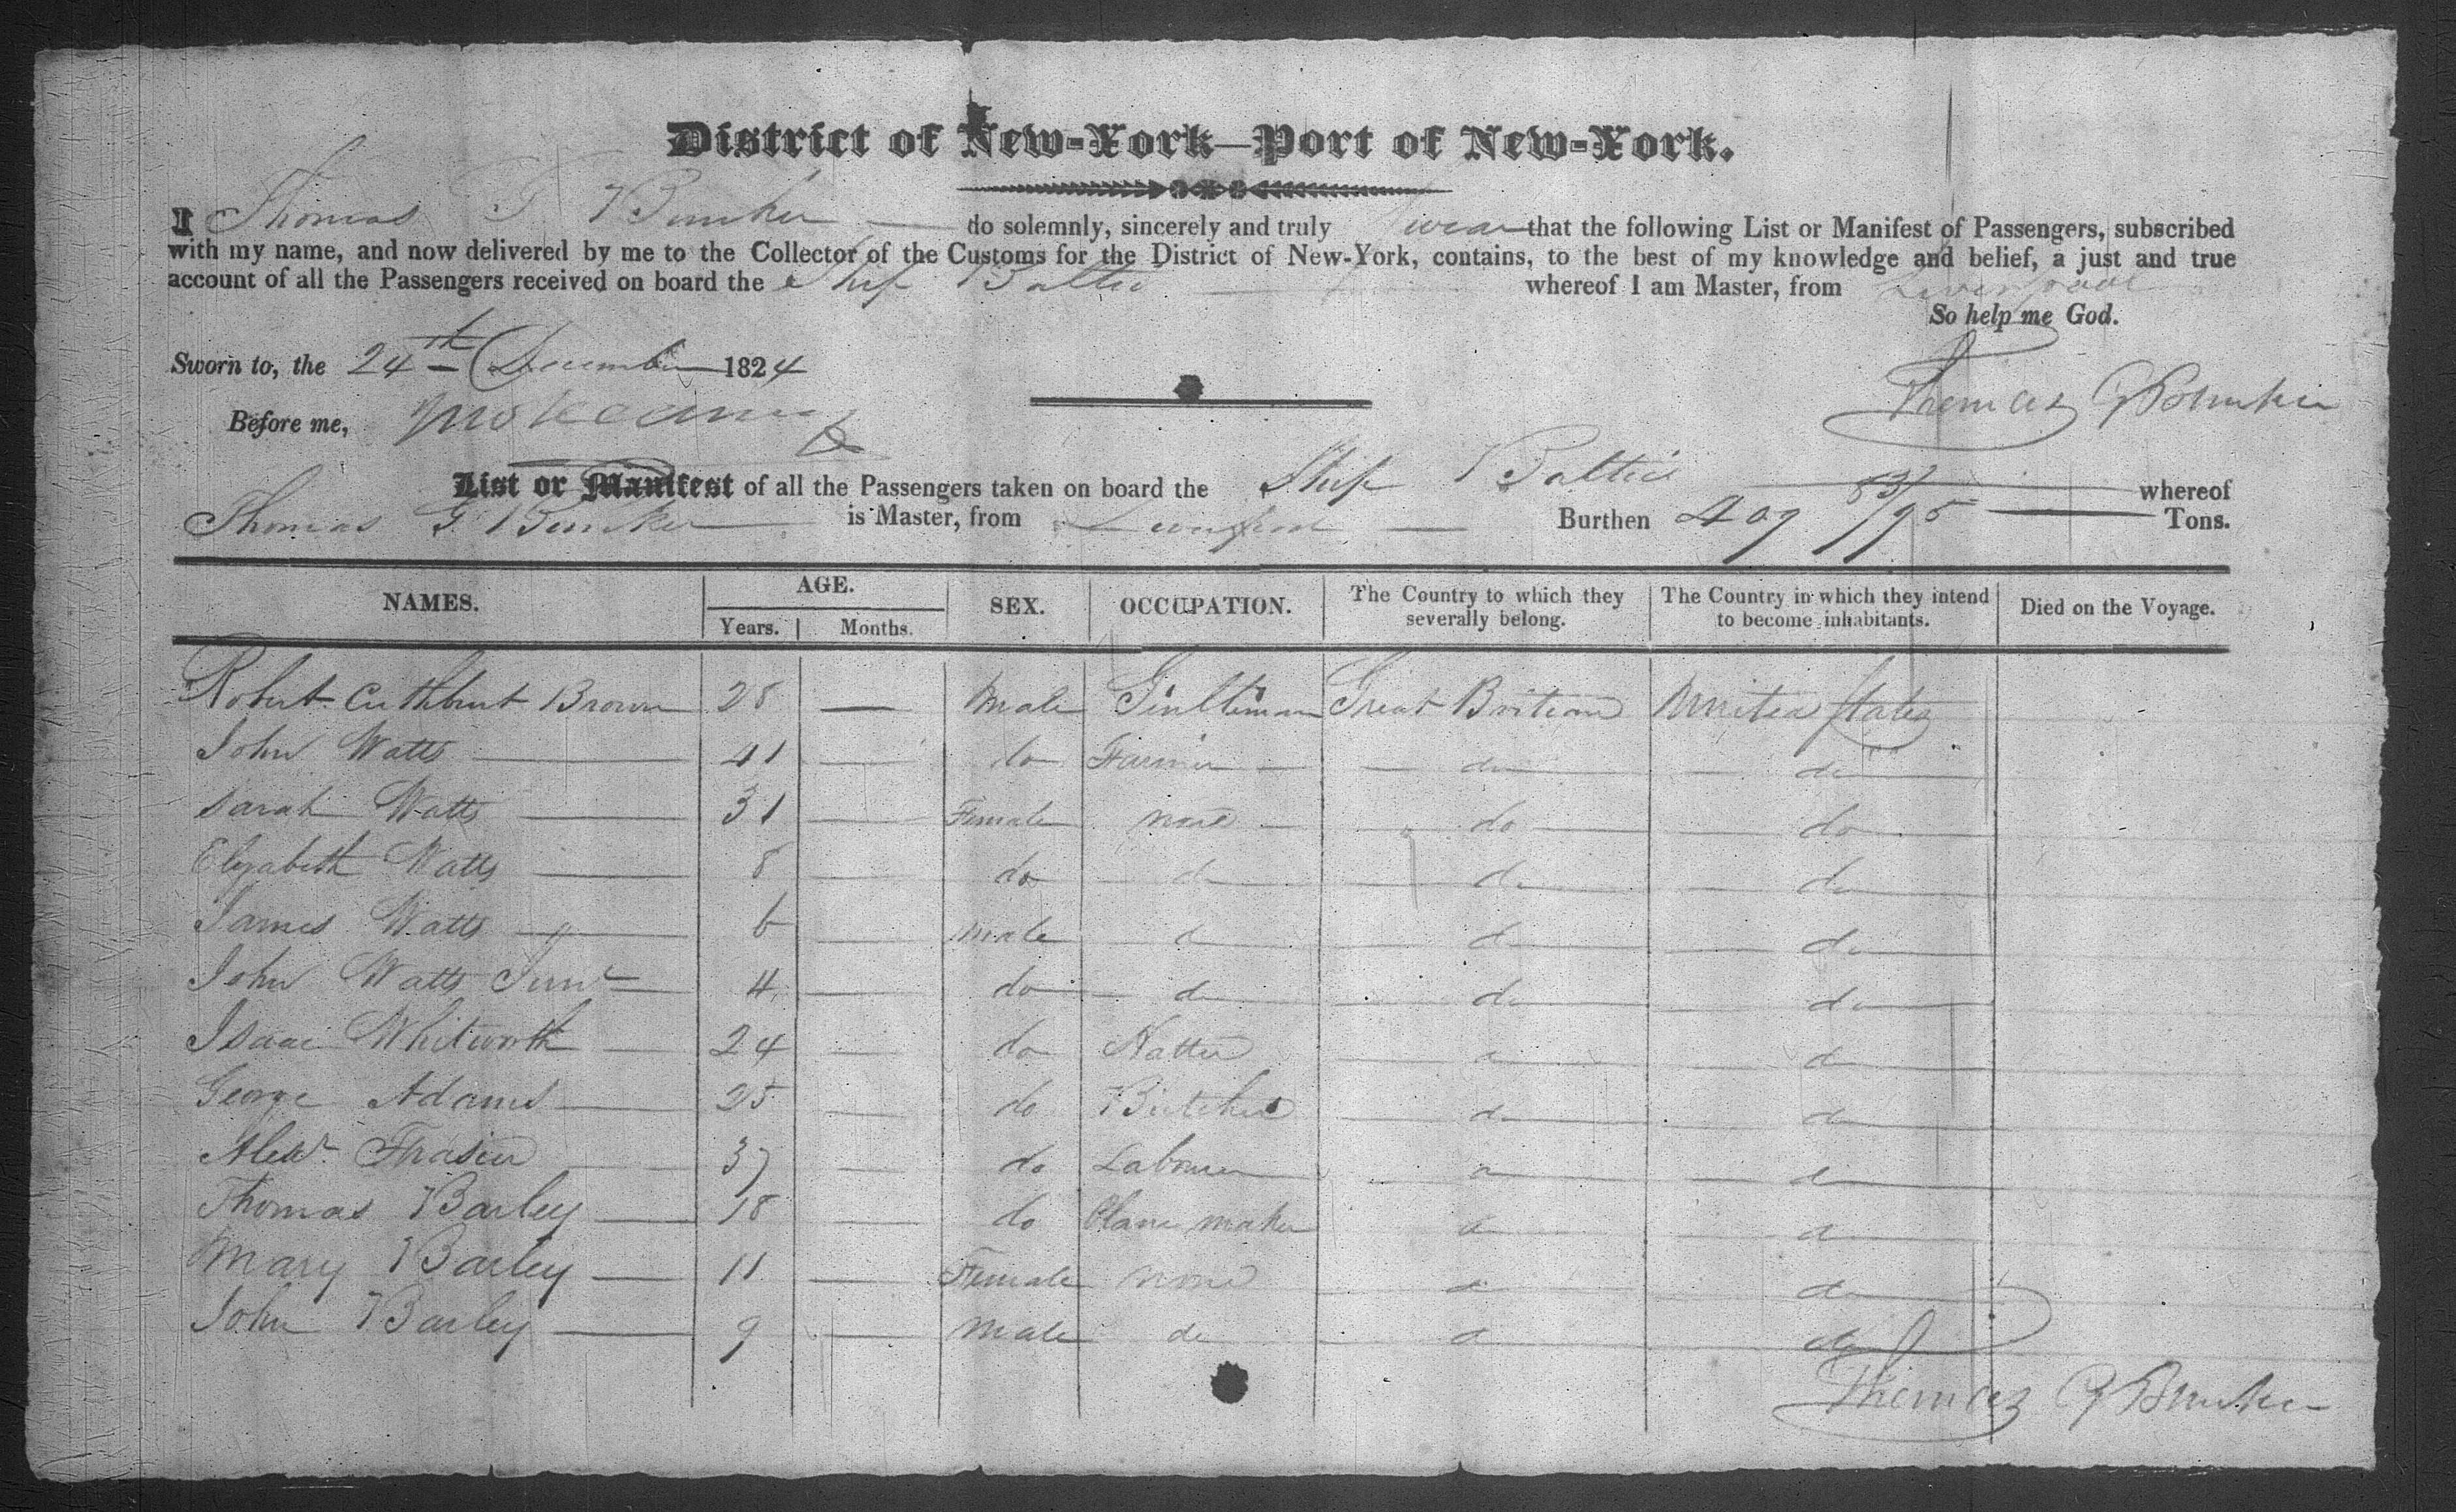 District of New-York—Port of New-York.
I Thomas G Bunker do solemnly, sincerely and truly swear that the following List or Manifest of Passengers, subscribed
with my name, and now delivered by me to the Collector of the Customs for the District of New-York, contains, to the best of my knowledge and belief, a just and true
account of all the Passengers received on board the Ship Baltic whereof I am Master, from Liverpool
So help me God.
Sworn to, the 24th December 1824
Thomas G Bunker
Before me,
List or Manifest of all the Passengers taken on board the Ship Baltic whereof
Thomas G Bunker is Master, from Liverpool Burthen 409 83/95 Tons.
NAMES. AGE. SEX. OCCUPATION. The Country to which they severally belong. The Country in which they intend to become inhabitants. Died on the Voyage.
Years. Months.
Robert Cuthbert Brown 28 — Male Gentleman Great Britain United States
John Watts 41 — do Farmer do do
Sarah Watts 31 — Female none do do
Elizabeth Watts 8 — do do do do
James Watts 6 — Male do do do
John Watts Junr 4 — do do do do
Isaac Whitworth 24 — do Hatter do do
George Adams 25 — do Butcher do do
Alexr Frasier 37 — do Labourer do do
Thomas Barley 18 — do Plane maker do do
Mary Barley 11 — Female none do do
John Barley 9 — Male do do do
Thomas G Bunker